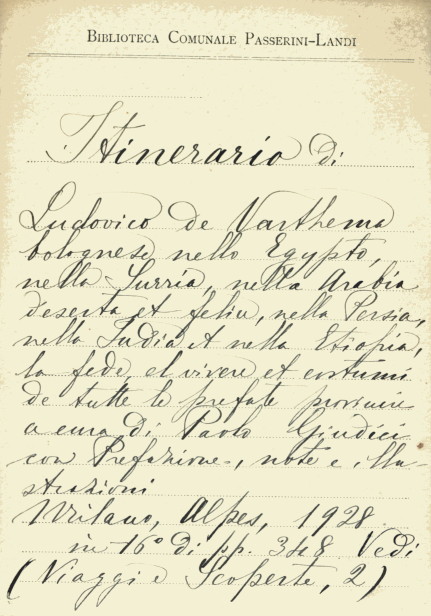 BIBLIOTECA COMUNALE PASSERINI-LANDI
Itinerario di
Ludovico de Varthema
bolognese nello Egypto,
nella Surria, nella Arabia
deserta et felix, nella Persia,
nella India et nella Etiopia,
la fede, el vivere et costumi
de tutte le prefate provincie
a cura di Paolo Giudici
con Prefazione, note e illu-
strazioni
Milano, Alpes, 1928
in 16° di pp. 348 Vedi
(Viaggi e Scoperte, 2)